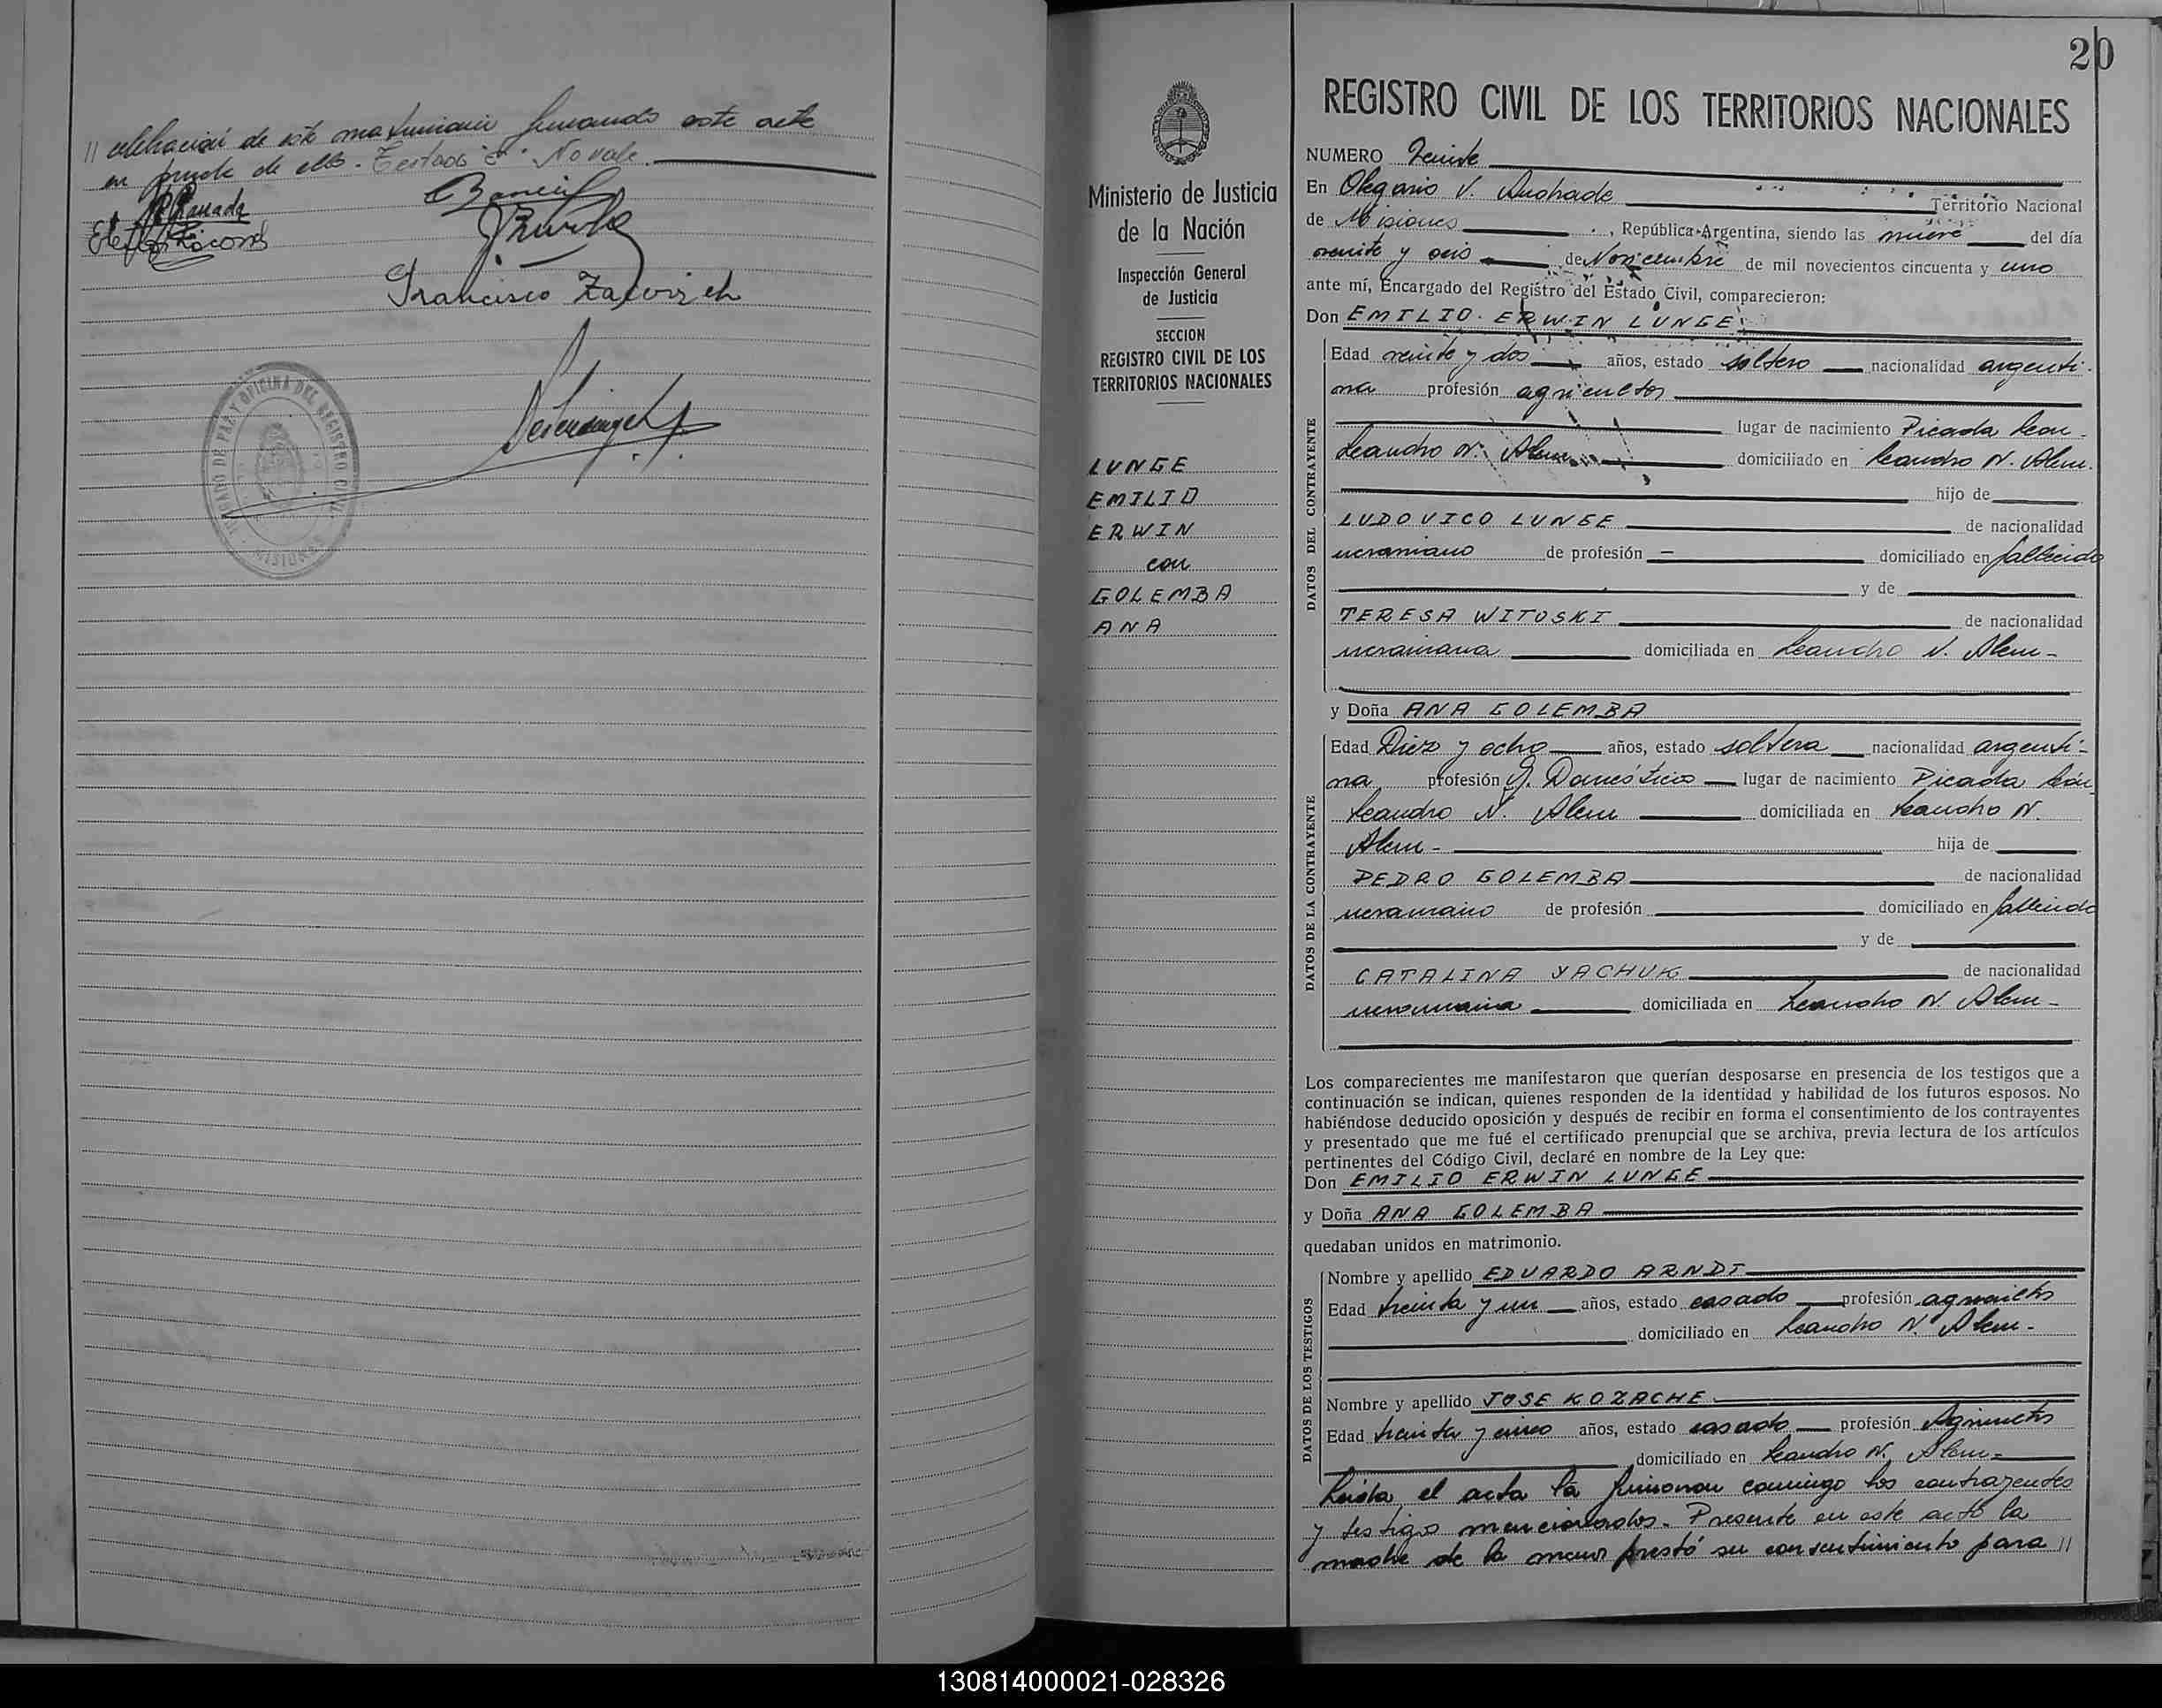 // celebración de este matrimonio firmando este acta
en prueba de ello. - Testado "e". No vale.
Francisco
JUZGADO DE PAZ Y OFICINA DEL REGISTRO CIVIL
MISIONES
Ministerio de Justicia
de la Nación
Inspección General
de Justicia
SECCION
REGISTRO CIVIL DE LOS
TERRITORIOS NACIONALES
LUNGE
EMILIO
ERWIN
con
GOLEMBA
ANA
20
REGISTRO CIVIL DE LOS TERRITORIOS NACIONALES
NUMERO Veinte
En Olegario V. Andrade Territorio Nacional
de Misiones, República Argentina, siendo las nueve del día
veinte y seis de Noviembre de mil novecientos cincuenta y uno
ante mí, Encargado del Registro del Estado Civil, comparecieron:
Don EMILIO ERWIN LUNGE
DATOS DEL CONTRAYENTE
Edad veinte y dos años, estado soltero nacionalidad argenti-
na profesión agricultor
lugar de nacimiento Picada
Leandro N. Alem domiciliado en Leandro N. Alem.
hijo de
LUDOVICO LUNGE de nacionalidad
ucraniano de profesión — domiciliado en fallecido
y de
TERESA WITOSKI de nacionalidad
ucraniana domiciliada en Leandro N. Alem-
y Doña ANA GOLEMBA
DATOS DE LA CONTRAYENTE
Edad Diez y ocho años, estado soltera nacionalidad argenti-
na profesión Q. Domésticos lugar de nacimiento Picada
Leandro N. Alem domiciliada en Leandro N.
Alem- hija de
PEDRO GOLEMBA de nacionalidad
ucraniano de profesión domiciliado en fallecido
y de
CATALINA YACHUK de nacionalidad
ucraniana domiciliada en Leandro N. Alem-
Los comparecientes me manifestaron que querían desposarse en presencia de los testigos que a
continuación se indican, quienes responden de la identidad y habilidad de los futuros esposos. No
habiéndose deducido oposición y después de recibir en forma el consentimiento de los contrayentes
y presentado que me fué el certificado prenupcial que se archiva, previa lectura de los artículos
pertinentes del Código Civil, declaré en nombre de la Ley que:
Don EMILIO ERWIN LUNGE
y Doña ANA GOLEMBA
quedaban unidos en matrimonio.
DATOS DE LOS TESTIGOS
Nombre y apellido EDUARDO ARNDT
Edad treinta y un años, estado casado profesión agricultor
domiciliado en Leandro N. Alem-
Nombre y apellido JOSE KOZACHE
Edad treinta y cinco años, estado casado profesión Agricultor
domiciliado en Leandro N. Alem-
Leída el acta la firmaron conmigo los contrayentes
y testigos mencionados. Presente en este acto la
madre de la menor prestó su consentimiento para //
130814000021-028326